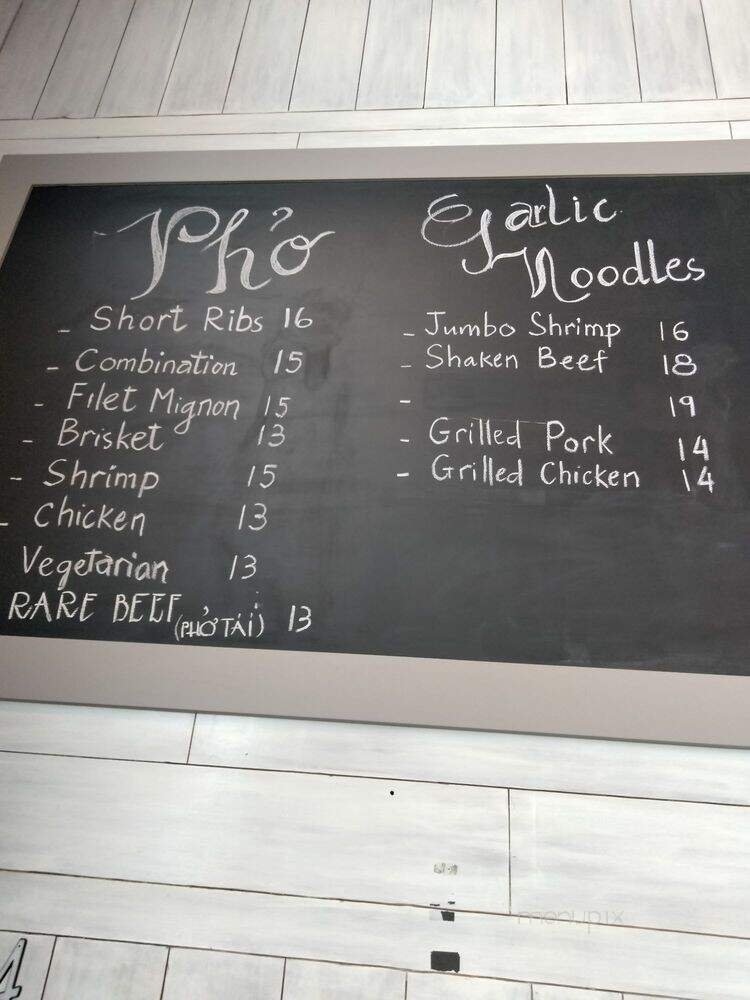 Phở
- Short Ribs 16
- Combination 15
- Filet Mignon 15
- Brisket 13
- Shrimp 15
- Chicken 13
Vegetarian 13
RARE BEEF (PHỞ TÁI) 13
Garlic
Noodles
- Jumbo Shrimp 16
- Shaken Beef 18
- 19
- Grilled Pork 14
- Grilled Chicken 14
menupix
4